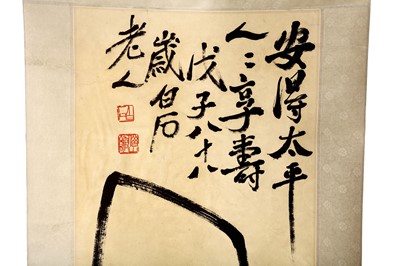 安得太平
人〻享壽
戊子八十八
歲白石
老人